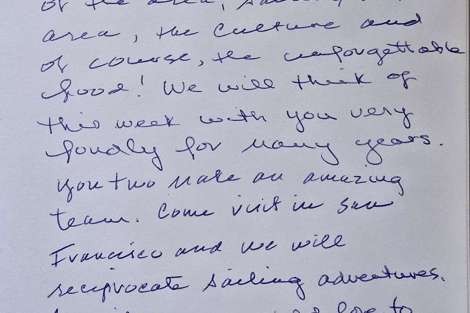 of the area, sailing
area, the culture and
of course, the unforgettable
food! We will think of
this week with you very
fondly for many years.
You two make an amazing
team. Come visit in San
Francisco and we will
reciprocate sailing adventures.
love to